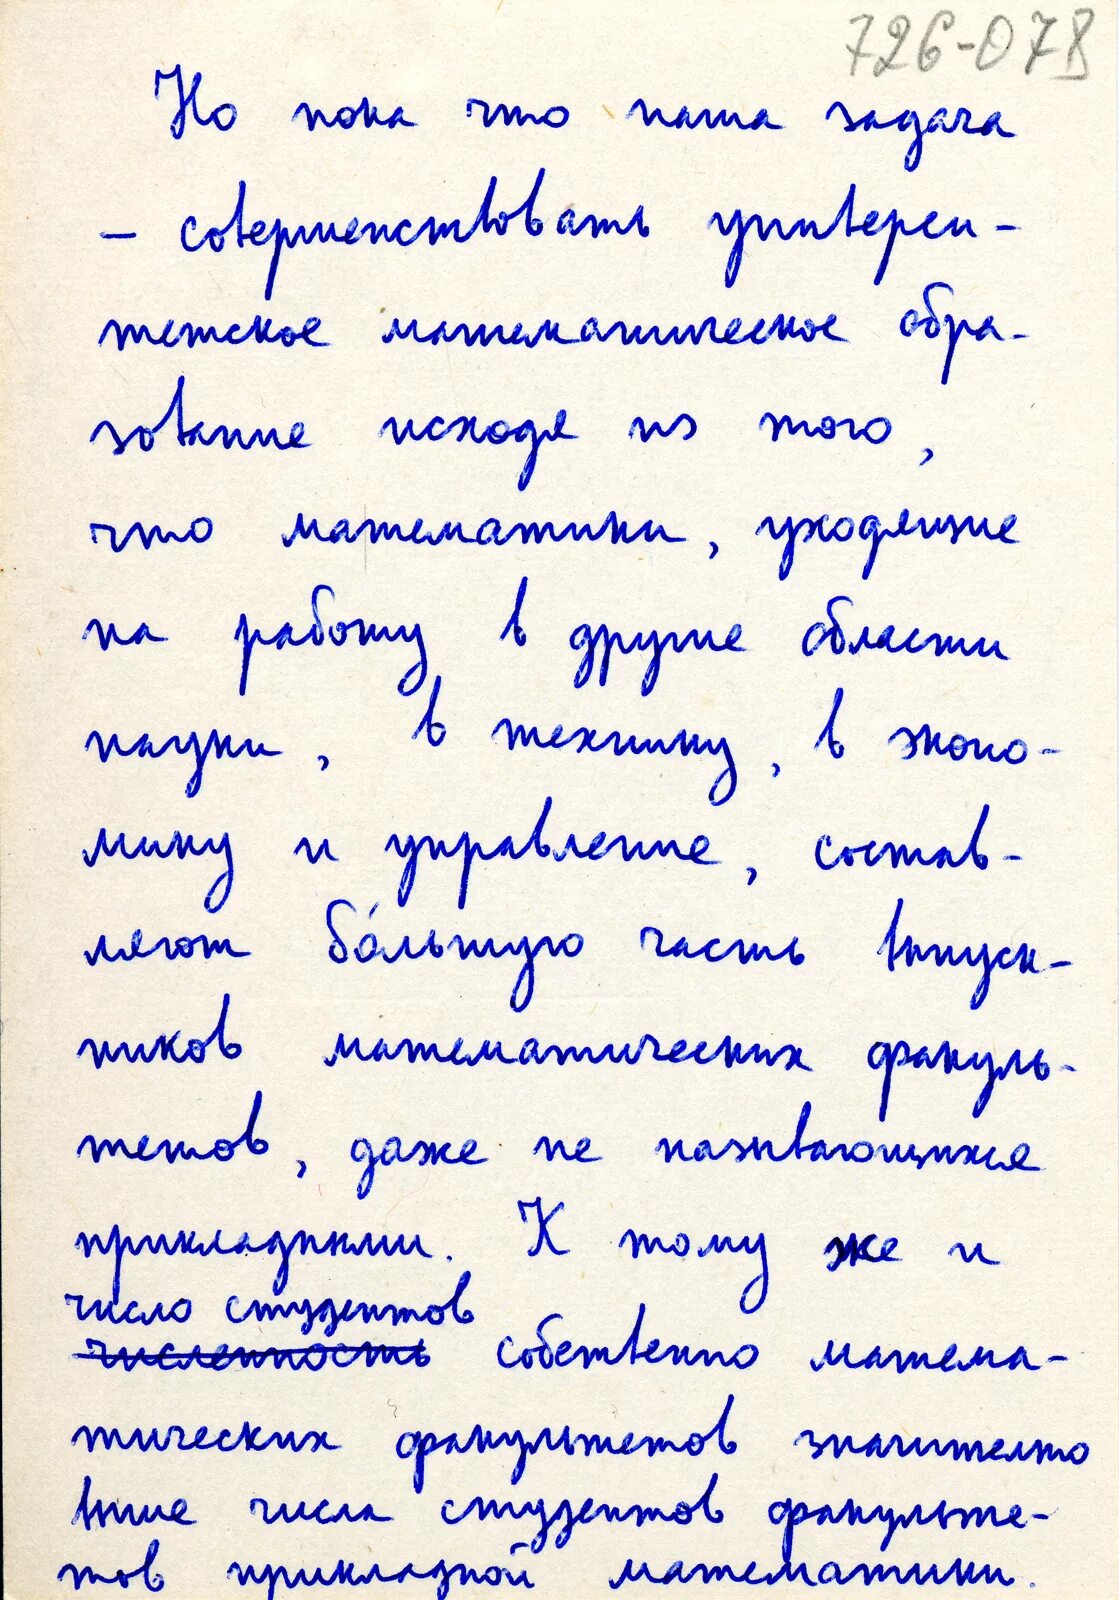 726-078
Но пока что наша задача
— совершенствовать универси-
тетское математическое обра-
зование исходя из того,
что математики, уходящие
на работу в другие области
науки, в технику, в эконо-
мику и управление, состав-
ляют бо́льшую часть выпуск-
ников математических факуль-
тетов, даже не называющихся
прикладными. К тому же и
число студентов
численность собственно матема-
тических факультетов значително
выше числа студентов факульте-
тов прикладной математики.